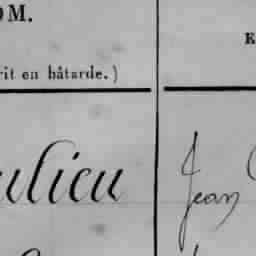 OM.
rit en bâtarde.)
ulieu
Jean